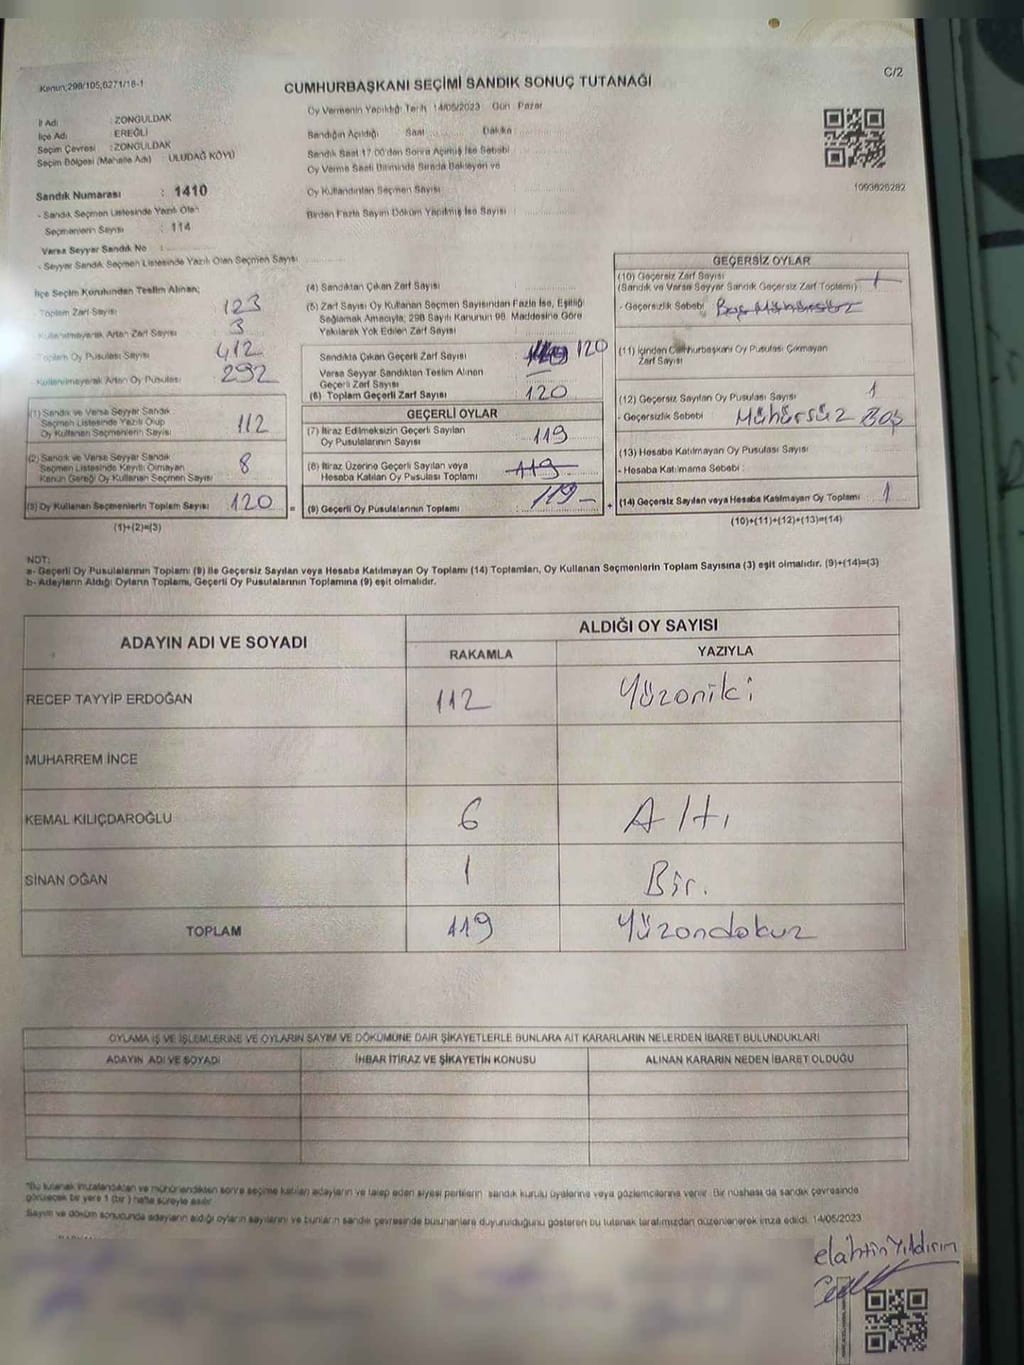 Kanun,298/105,6271/18-1
C/2
CUMHURBAŞKANI SEÇİMİ SANDIK SONUÇ TUTANAĞI
İl Adı : ZONGULDAK
İlçe Adı : EREĞLİ
Seçim Çevresi : ZONGULDAK
Seçim Bölgesi (Mahalle Adı) : ULUDAĞ KÖYÜ
Sandık Numarası : 1410
- Sandık Seçmen Listesinde Yazılı Olan
Seçmenlerin Sayısı : 114
Varsa Seyyar Sandık No :
- Seyyar Sandık Seçmen Listesinde Yazılı Olan Seçmen Sayısı
Oy Vermenin Yapıldığı Tarih 14/05/2023 Gün Pazar
Sandığın Açıldığı Saat Dakika
Sandık Saat 17:00'den Sonra Açılmış İse Sebebi
Oy Verme Saati Bitiminde Sırada Bekleyen ve
Oy Kullandırılan Seçmen Sayısı
Birden Fazla Sayım Döküm Yapılmış İse Sayısı
1093626282
İlçe Seçim Kurulundan Teslim Alınan;
Toplam Zarf Sayısı 123
Kullanılmayarak Artan Zarf Sayısı 3
Toplam Oy Pusulası Sayısı 412
Kullanılmayarak Artan Oy Pusulası 292
(1) Sandık ve Varsa Seyyar Sandık
Seçmen Listesinde Yazılı Olup
Oy Kullanan Seçmenlerin Sayısı 112
(2) Sandık ve Varsa Seyyar Sandık
Seçmen Listesinde Kayıtlı Olmayan
Kanun Gereği Oy Kullanan Seçmen Sayısı 8
(3) Oy Kullanan Seçmenlerin Toplam Sayısı 120 =
(1)+(2)=(3)
(4) Sandıktan Çıkan Zarf Sayısı
(5) Zarf Sayısı Oy Kullanan Seçmen Sayısından Fazla İse, Eşitliği
Sağlamak Amacıyla, 298 Sayılı Kanunun 98. Maddesine Göre
Yakılarak Yok Edilen Zarf Sayısı
Sandıkta Çıkan Geçerli Zarf Sayısı 120
Varsa Seyyar Sandıktan Teslim Alınan
Geçerli Zarf Sayısı
(6) Toplam Geçerli Zarf Sayısı 120
GEÇERLİ OYLAR
(7) İtiraz Edilmeksizin Geçerli Sayılan
Oy Pusulalarının Sayısı 119
(8) İtiraz Üzerine Geçerli Sayılan veya
Hesaba Katılan Oy Pusulası Toplamı 119
(9) Geçerli Oy Pusulalarının Toplamı 119 +
GEÇERSİZ OYLAR
(10) Geçersiz Zarf Sayısı
(Sandık ve Varsa Seyyar Sandık Geçersiz Zarf Toplamı) 1
- Geçersizlik Sebebi Boş Mühürsüz
(11) İçinden Cumhurbaşkanı Oy Pusulası Çıkmayan
Zarf Sayısı
(12) Geçersiz Sayılan Oy Pusulası Sayısı 1
- Geçersizlik Sebebi Mühürsüz Boş
(13) Hesaba Katılmayan Oy Pusulası Sayısı
- Hesaba Katılmama Sebebi :
(14) Geçersiz Sayılan veya Hesaba Katılmayan Oy Toplamı : 1
(10)+(11)+(12)+(13)=(14)
NOT:
a- Geçerli Oy Pusulalarının Toplamı (9) ile Geçersiz Sayılan veya Hesaba Katılmayan Oy Toplamı (14) Toplamları, Oy Kullanan Seçmenlerin Toplam Sayısına (3) eşit olmalıdır. (9)+(14)=(3)
b- Adayların Aldığı Oyların Toplamı, Geçerli Oy Pusulalarının Toplamına (9) eşit olmalıdır.
ADAYIN ADI VE SOYADI
ALDIĞI OY SAYISI
RAKAMLA YAZIYLA
RECEP TAYYİP ERDOĞAN 112 Yüzoniki
MUHARREM İNCE
KEMAL KILIÇDAROĞLU 6 Altı
SİNAN OĞAN 1 Bir.
TOPLAM 119 Yüzondokuz
OYLAMA İŞ VE İŞLEMLERİNE VE OYLARIN SAYIM VE DÖKÜMÜNE DAİR ŞİKAYETLERLE BUNLARA AİT KARARLARIN NELERDEN İBARET BULUNDUKLARI
ADAYIN ADI VE SOYADI İHBAR İTİRAZ VE ŞİKAYETİN KONUSU ALINAN KARARIN NEDEN İBARET OLDUĞU
"Bu tutanak imzalandıktan ve mühürlendikten sonra seçime katılan adayların ve talep eden siyasi partilerin sandık kurulu üyelerine veya gözlemcilerine verilir. Bir nüshası da sandık çevresinde
görülecek bir yere 1 (bir) hafta süreyle asılır
Sayım ve döküm sonucunda adayların aldığı oyların sayılarını ve bunların sandık çevresinde bulunanlara duyurulduğunu gösteren bu tutanak tarafımızdan düzenlenerek imza edildi. 14/05/2023
elahtin Yıldırım